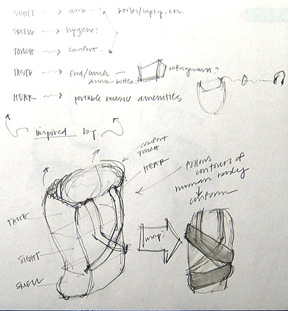 SIGHT → work → books/laptop, etc.
SMELL → hygiene
TOUCH → comfort
TASTE → food/lunch refrigerator?
drink bottle
HEAR → portable music amenities
inspired by
comfort
touch
HEAR
follows
contours of
human body
conform
TASTE
wrap
SIGHT
SMELL